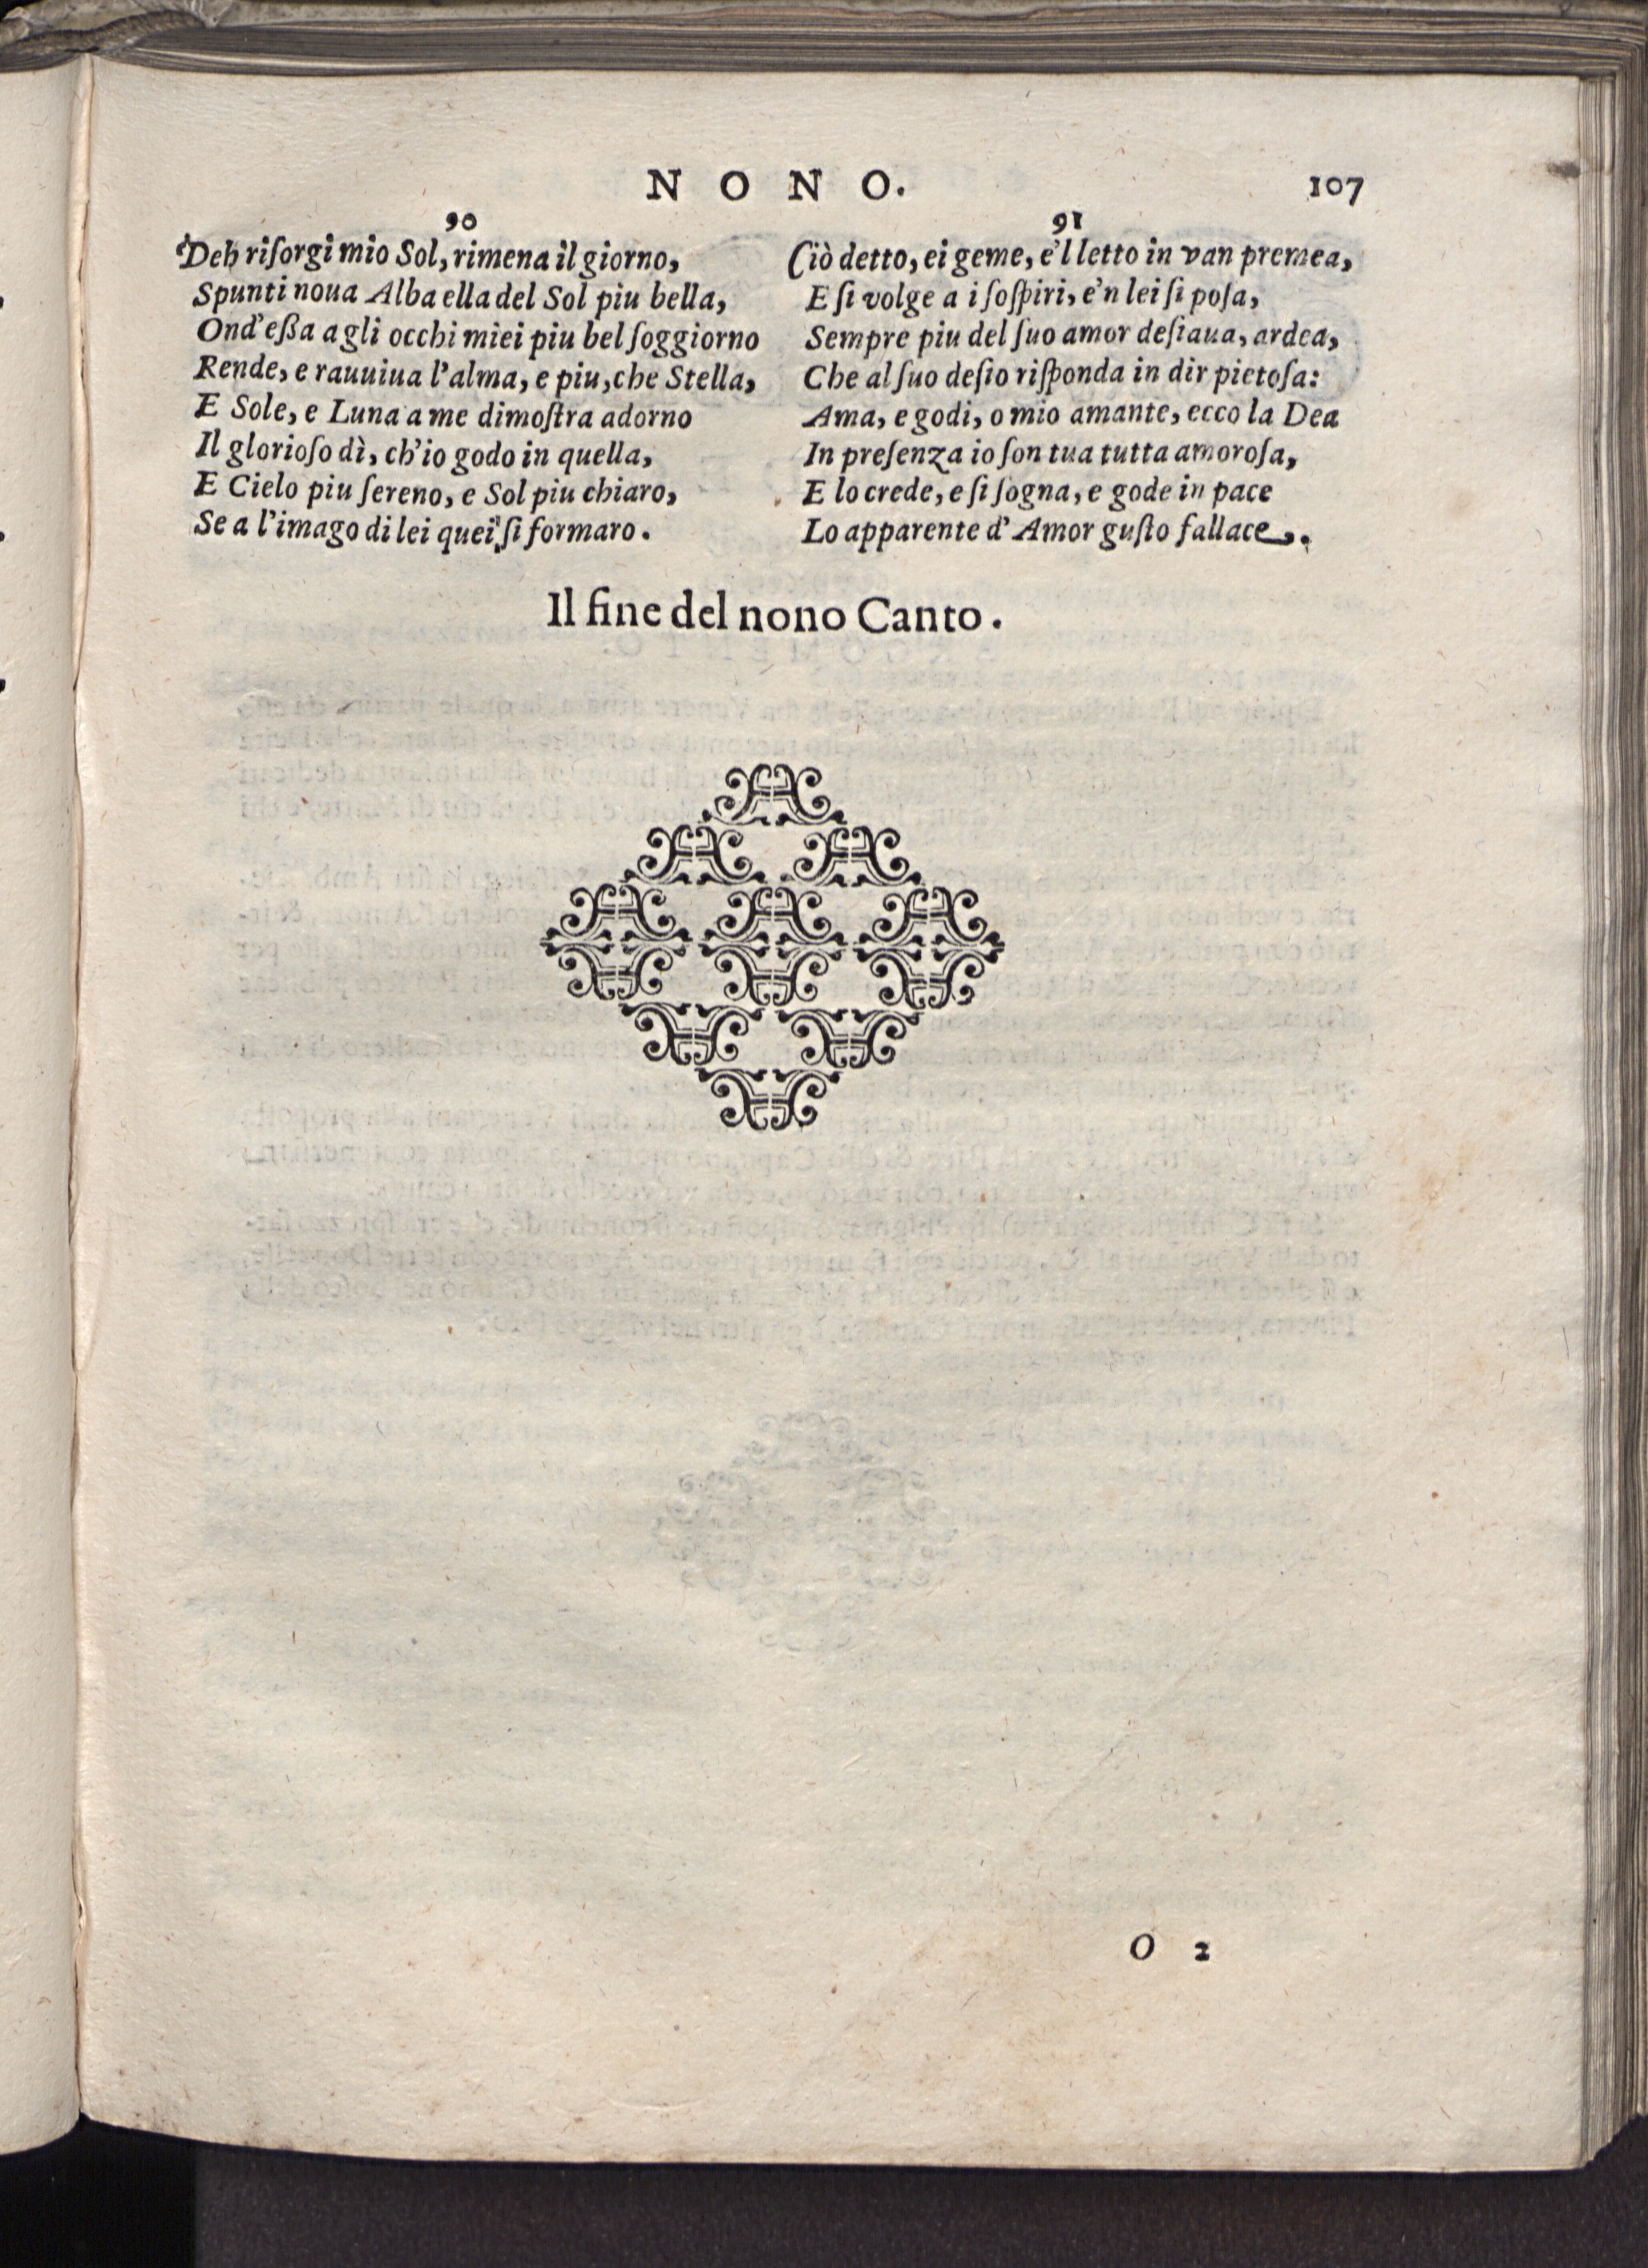 NONO.
107
90
Deh riſorgi mio Sol, rimena il giorno,
Spunti noua Alba ella del Sol piu bella,
Ond'eßa a gli occhi miei piu bel ſoggiorno
Rende, e rauuiua l'alma, e piu, che Stella,
E Sole, e Luna a me dimoſtra adorno
Il glorioſo dì, ch'io godo in quella,
E Cielo piu ſereno, e Sol piu chiaro,
Se a l'imago di lei quei ſi formaro.
91
Ciò detto, ei geme, e'l letto in van premea,
E ſi volge a i ſoſpiri, e'n lei ſi poſa,
Sempre piu del ſuo amor deſiaua, ardea,
Che al ſuo deſio riſponda in dir pietoſa:
Ama, e godi, o mio amante, ecco la Dea
In preſenza io ſon tua tutta amoroſa,
E lo crede, e ſi ſogna, e gode in pace
Lo apparente d'Amor guſto fallace.
Il fine del nono Canto.
O 2